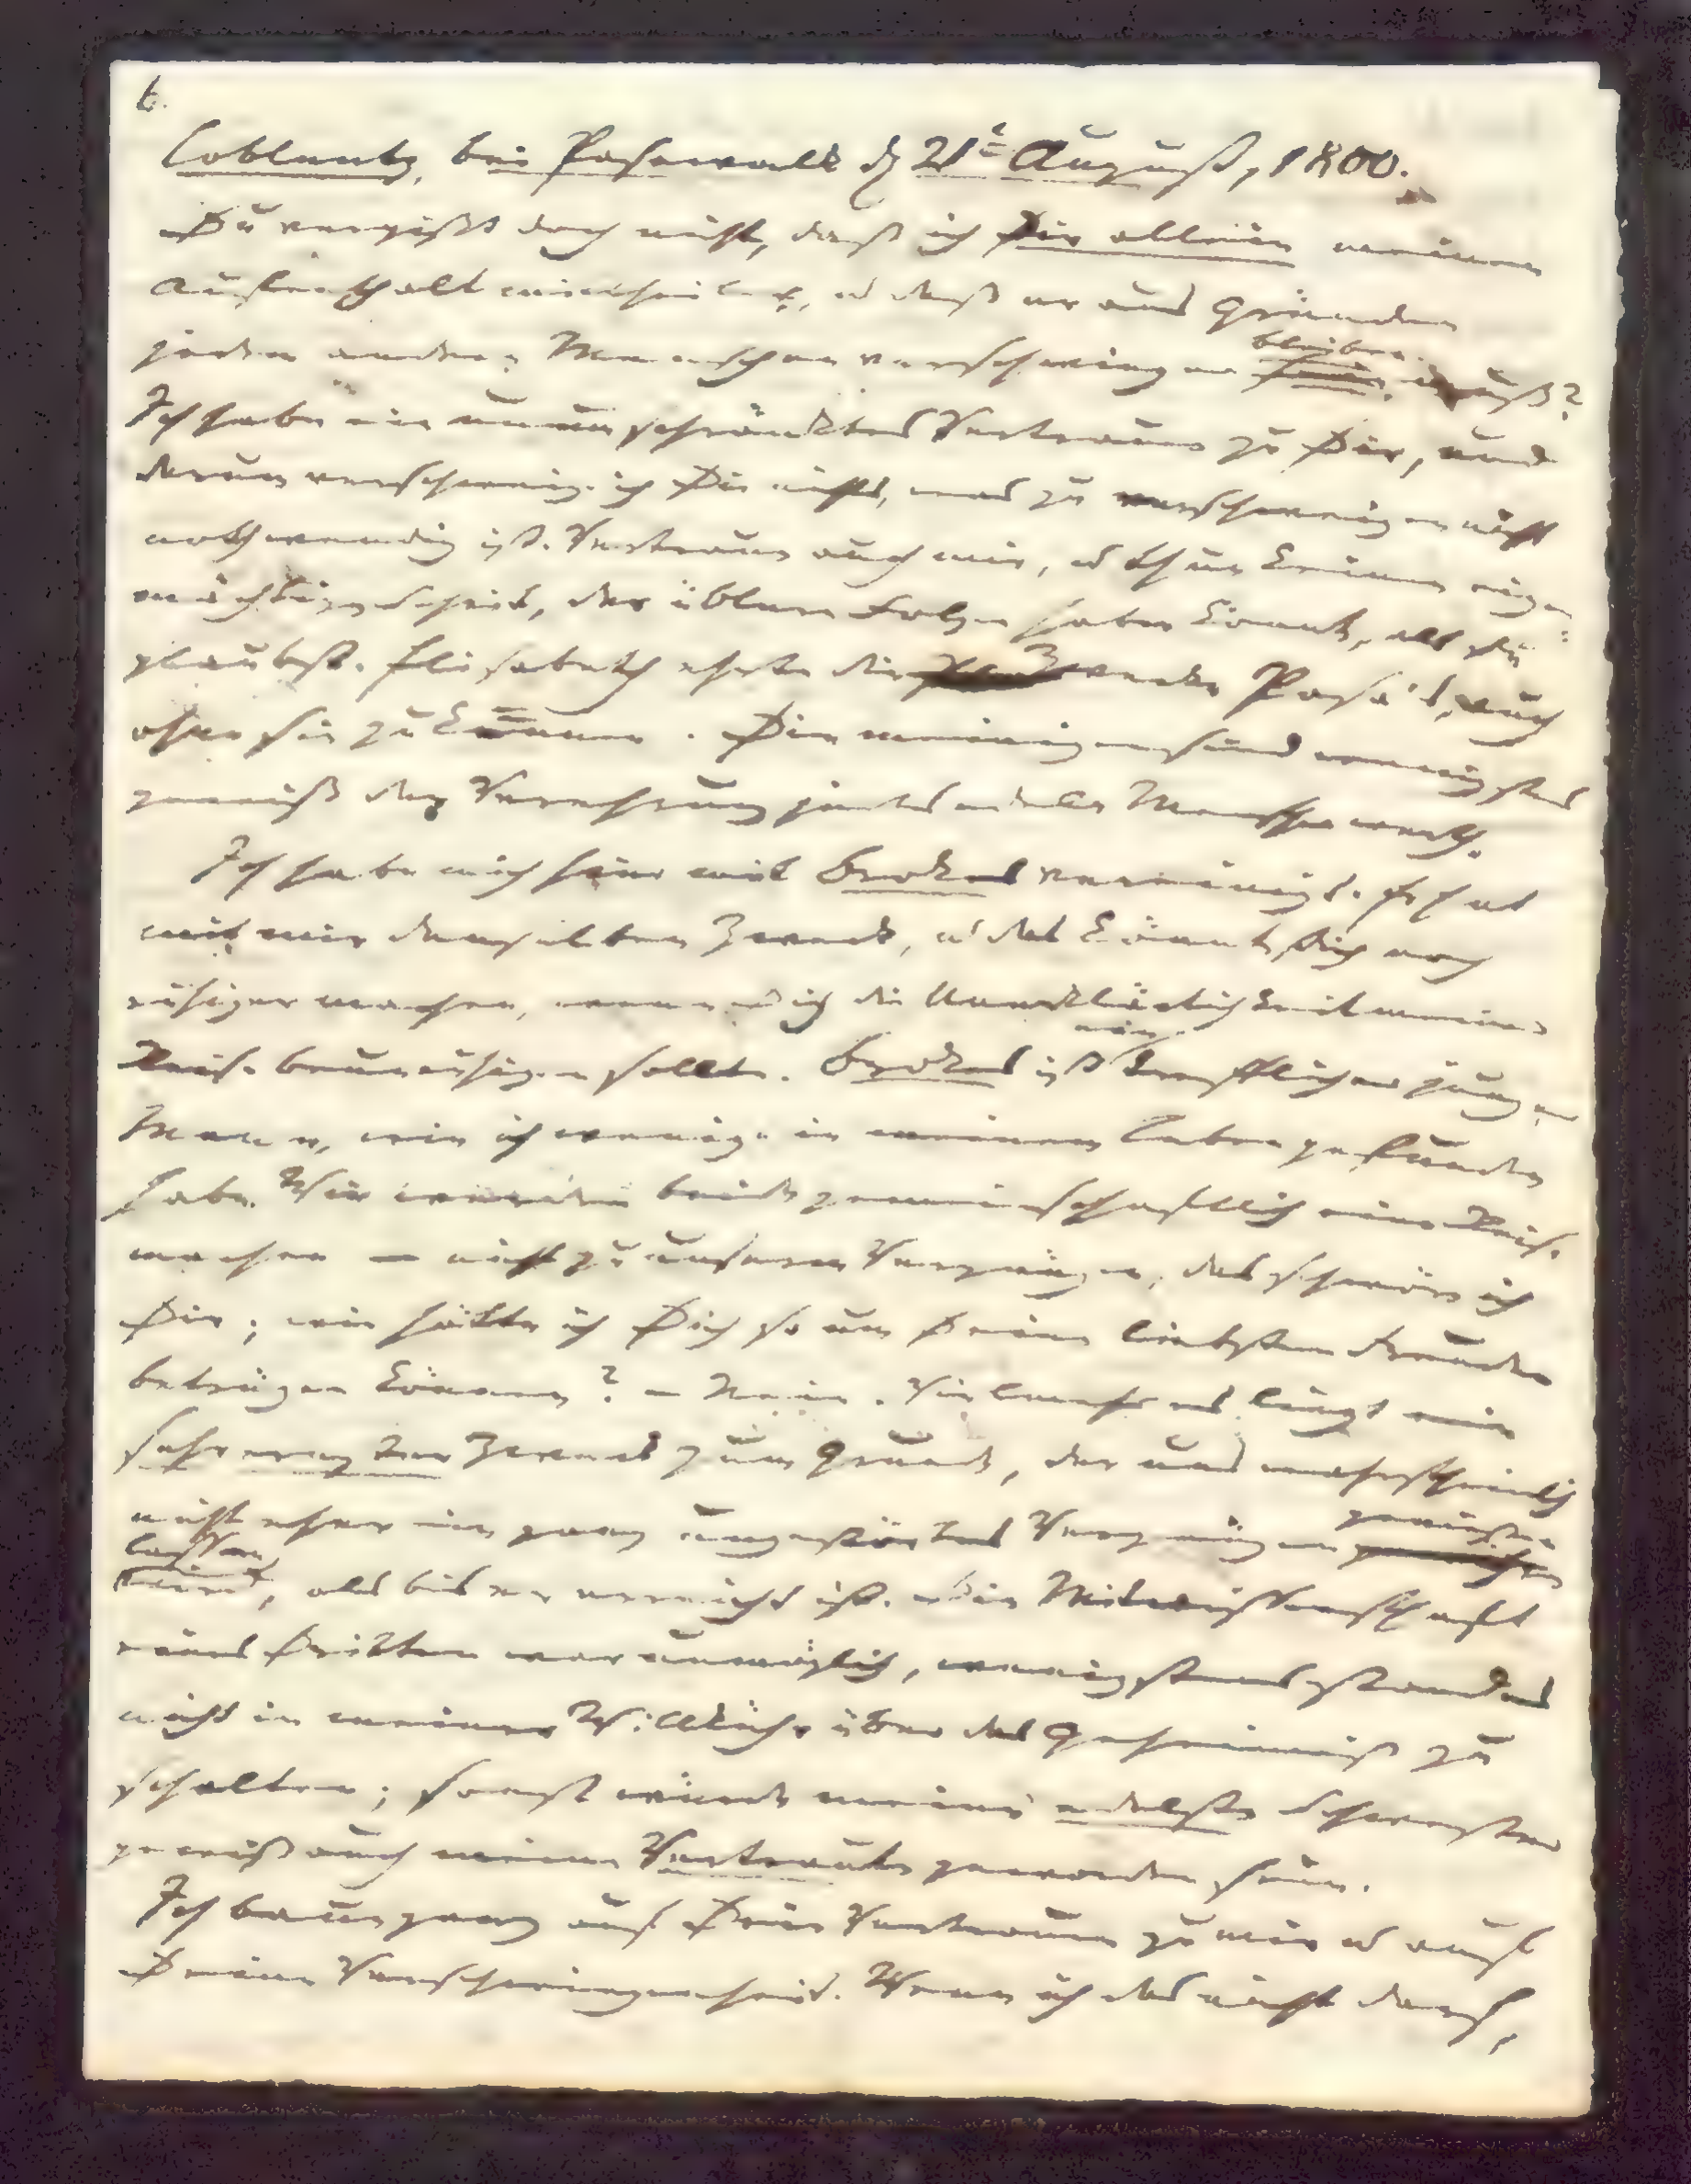 6.
Coblentz, bei Pasewalk d 21t August, 1800.
Du vergißt doch nicht, daß ich Dir allein meinen
Aufenthalt mittheile, u daß er aus Gründen
jedem andern Menschen verschwiegen bleiben muß?
Ich habe ein uneingeschränktes Vertraun zu Dir, und
darum verschweige ich Dir nichts, was zu verschweigen nicht
nothwendig ist. Vertraue auch mir, u thue keinen eigen=
mächtigen Schritt, der üblere Folgen haben könnte, als Du
glaubst. Elisabeth ehrte die Zwecke Posa's, auch
ohne sie zu kennen. Die meinigen sind wenigstens
gewiß der Verehrung jedes edeln Menschen werth.
Ich habe mich hier mit Brokes vereinigt. Er hat
mit mir denselben Zweck, u das könnte Dich noch
ruhiger machen, wenn Dich die Unerklärlichkeit meiner
Reise beunruhigen sollte. Brokes ist ein trefflicher junger
Mann, wie ich wenige in meinem Leben gefunden
habe. Wir werden beide gemeinschaftlich eine Reise
machen – nicht zu unserm Vergnügen, das schwöre ich
Dir; wie hätte ich Dich so um Deine liebsten Freuden
betrügen können? – Nein. Vielmehr es liegt ein
sehr ernster Zweck zum Grunde, der uns wahrscheinlich
nicht eher ein ganz ungestörtes Vergnügen genießen
lassen wird, als bis er erreicht ist. Die Mitwissenschaft
eines Dritten war unmöglich, wenigstens stand es
nicht in meiner Willkühr über das Geheimniß zu
schalten; sonst würde meine edelste Schwester
gewiß auch meine Vertraute geworden sein.
Ich baue ganz auf Dein Vertraun zu mir u auf
Deine Verschwiegenheit. Wenn ich das nicht darf,